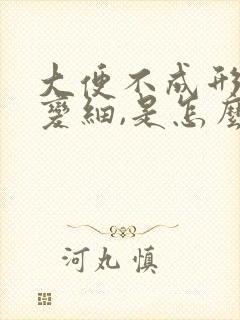 大便不成形
变細,是怎麼
河丸慎